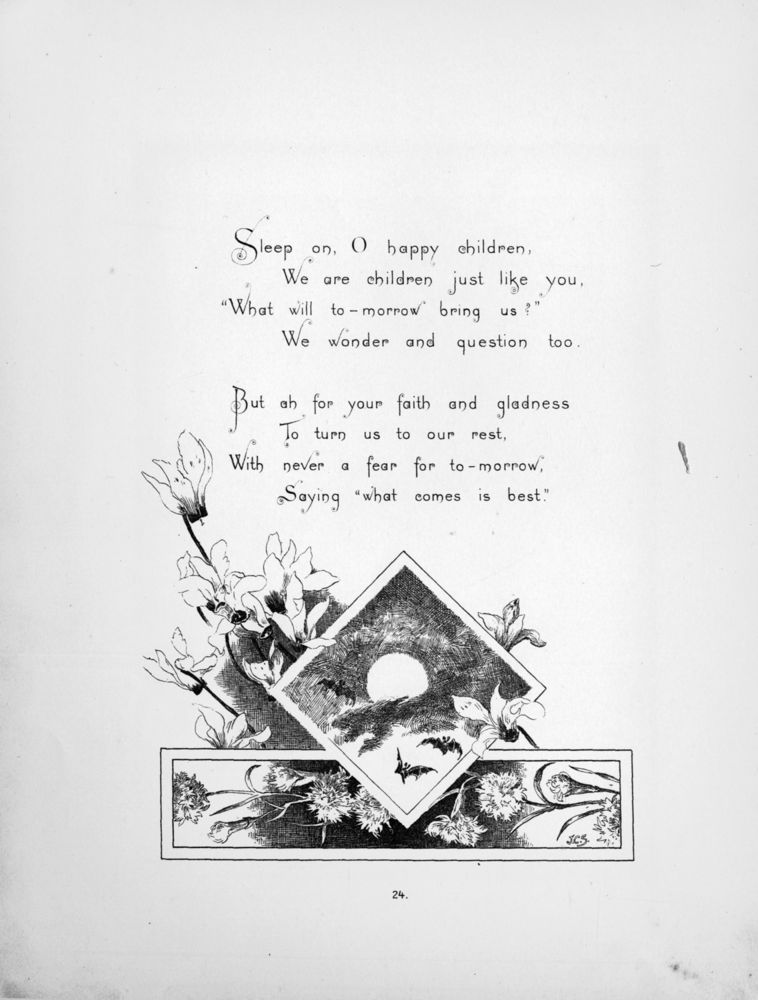 Sleep on, O happy children,
We are children just like you,
“What will to-morrow bring us?”
We wonder and question too.
But ah for your faith and gladness
To turn us to our rest,
With never a fear for to-morrow,
Saying “what comes is best.”
24.